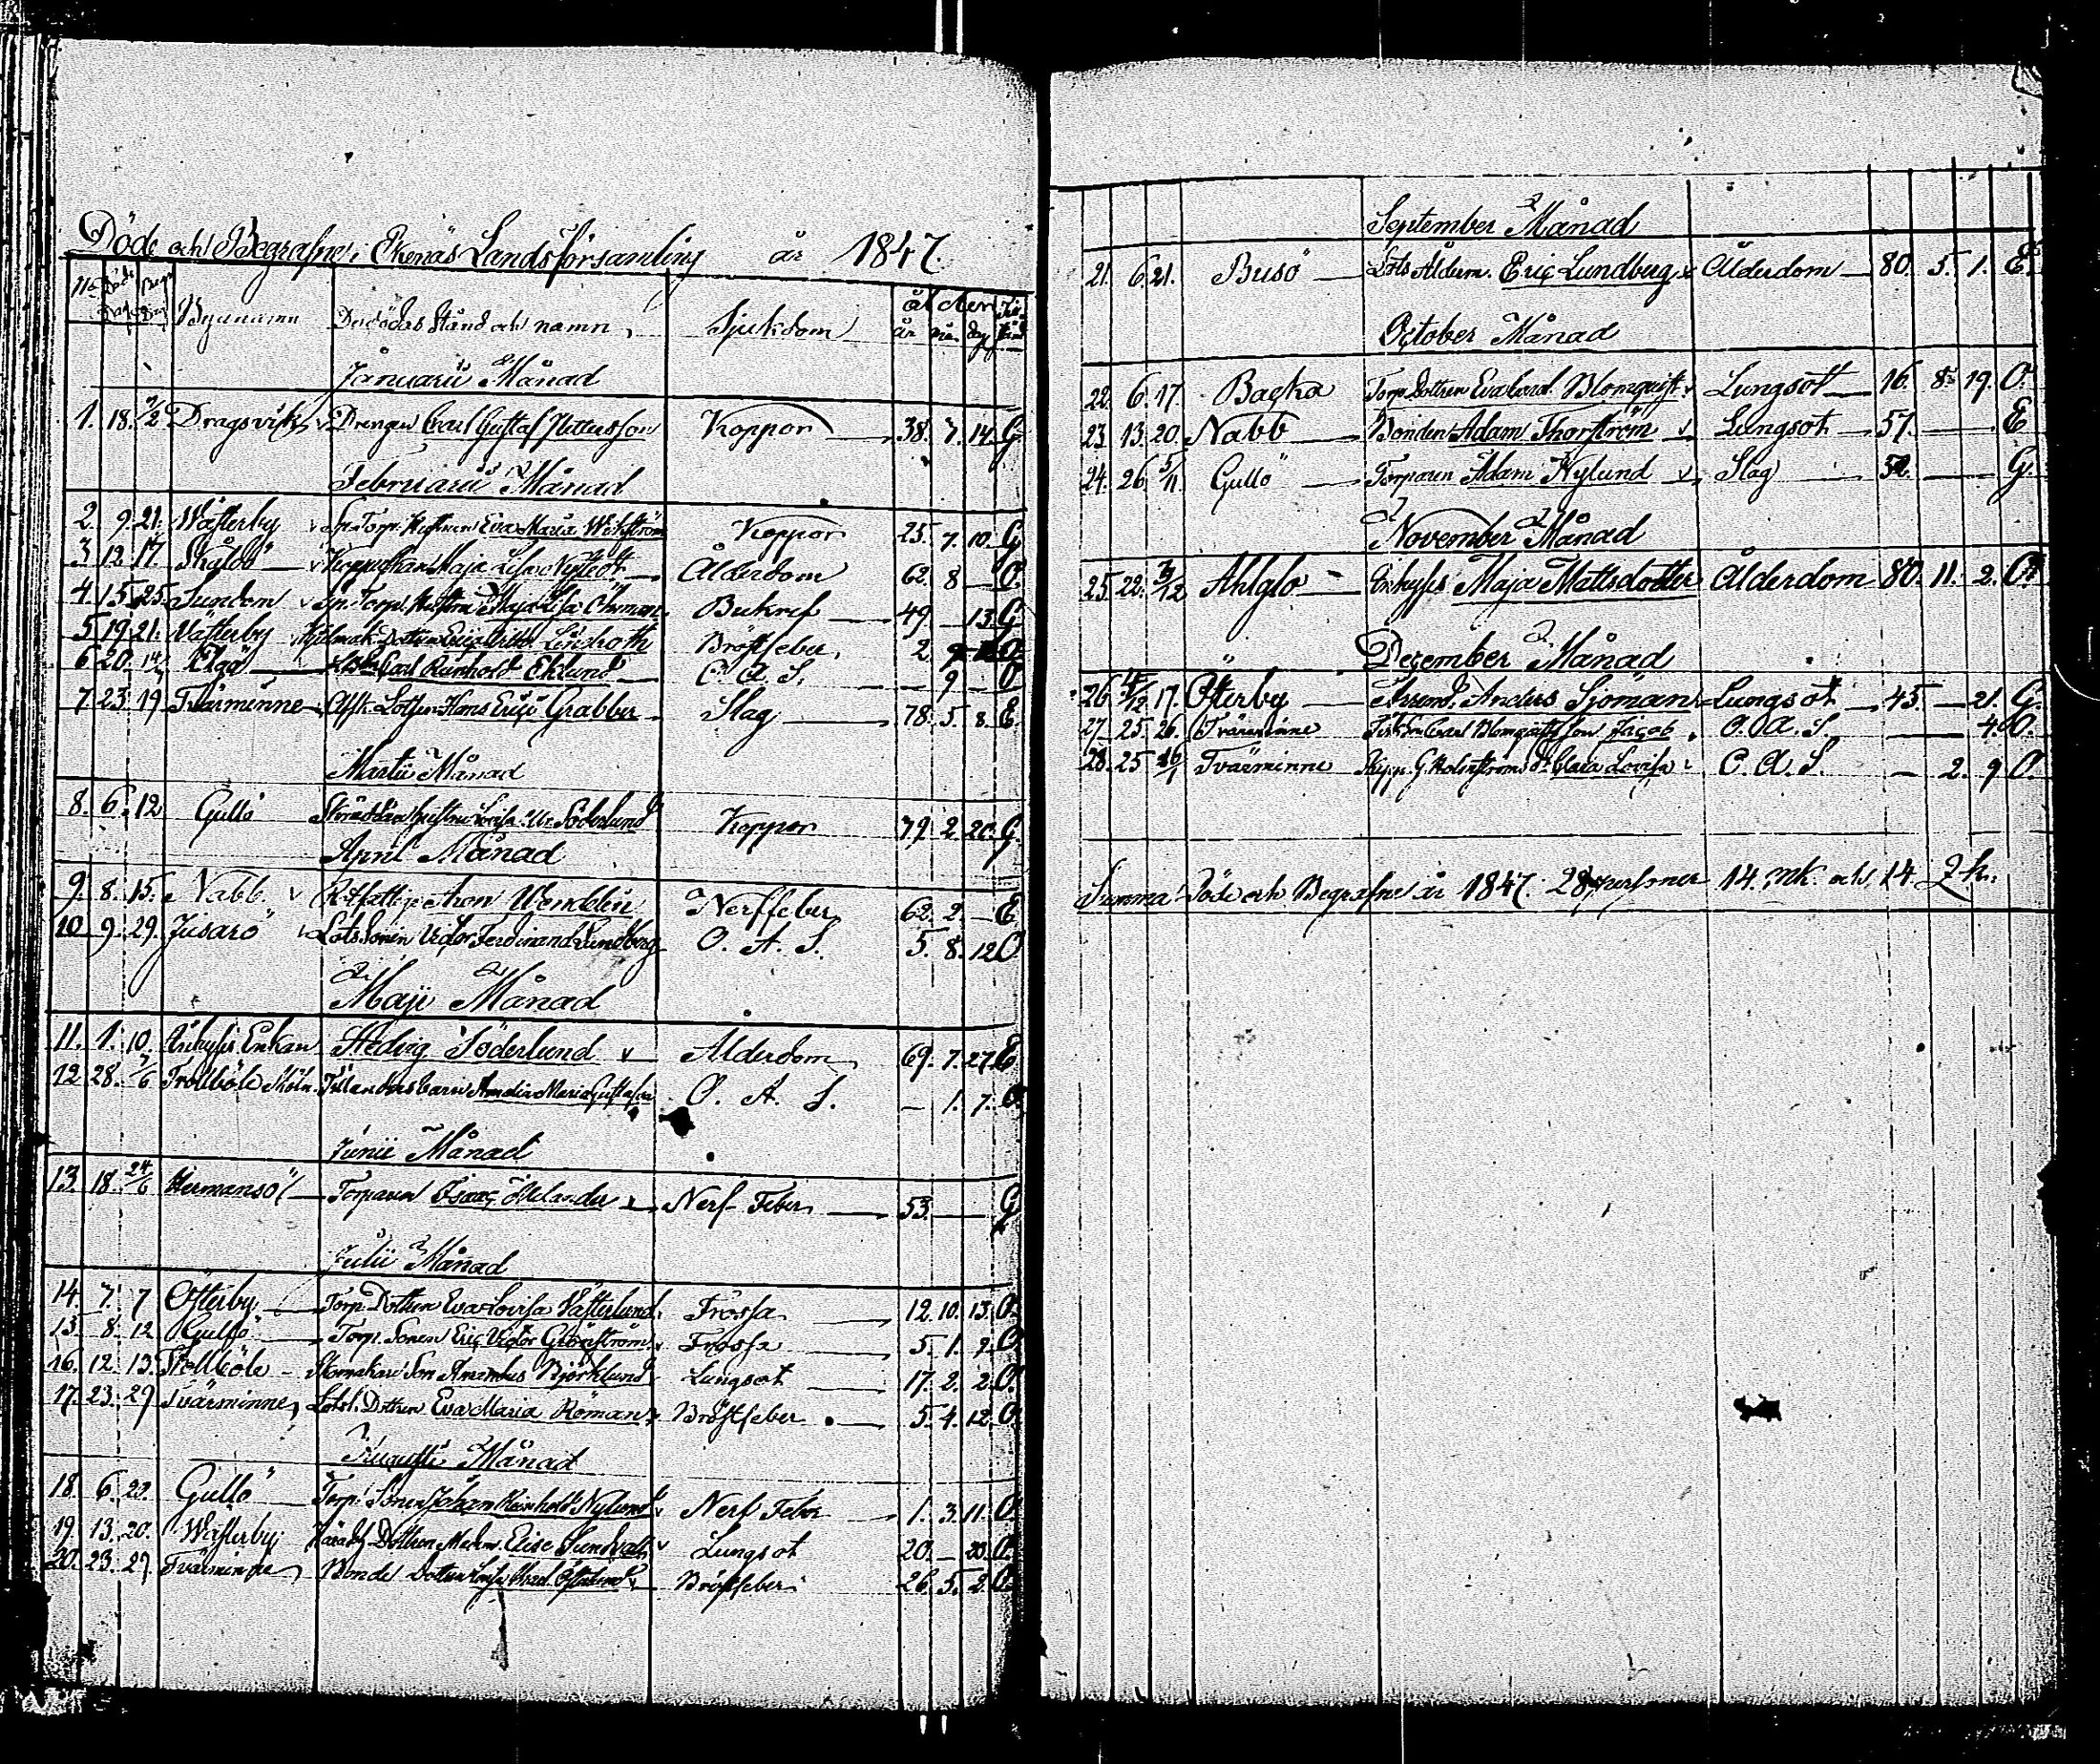 Döde och Begrafne i Ekenäs Landsförsamling år 1847.
No Död dag Begr dag Bynamn Den dödas Stånd och namn Sjukdom ålder år mån dag
Januarii Månad
1. 18. 7/2 Dragsvik Drengen Carl Gustaf Pettersson Koppor 38. 7. 14 G
Februarii Månad
2. 9. 21. Wästerby Sp. Torp. Hustrun Eva Maria Wikström Koppor 25. 7. 10. G
3 12 17. Skåldö Maja Lisa Nystedt Ålderdom 62. 8 — E.
4. 15. 25. Sundom Sp. Torp. Hustru Maja Lisa Öhrman Bukref 49. — 13. G
5 19. 21. Västerby Dottren Lindroth Bröstfeber 2 O.
6 20. Elgö Carl Reinhold Eklund O. A. S. — 9 — O
7. 23. 19 Tvärminne Afsk. Lotsen Hans Eric Grabber Slag 78. 5. 8. E
Martii Månad
8. 6. 12 Gullö Hustru Lovisa Ulr. Söderlund Koppor 79. 2. 20. G
April Månad
9. 8. 15. Nabb. Rotfattige Aron Wendelin Nerffeber 62. 2. — E
10. 9. 29. Jusarö Lots Sonen Victor Ferdinand Lundberg O. A. S. 5. 8. 12 O
Maji Månad
11. 1. 10. Inhyses Enkan Hedvig Söderlund Ålderdom 69. 7. 27. E
12 28. 7/6 Trollböle Barn Amalia Maria Gustafva O. A. S. — 1. 7. O
Junii Månad
13. 18. 24/6 Hermansö Torparen Isaac Melander Nerf Feber 53. — — G
Julii Månad
14. 7. 7 Österby Torp. Dottren Eva Lovisa Västerlund Frossa 12. 10. 13. O.
15. 8. 12 Gullö Torp. Sonen Eric Victor Grönström Frossa 5. 1. 9. O
16. 12. 13. Trollböle Skomakare Son Amandus Björklund Lungsot 17. 2. 2. O.
17. 23. 29 Tvärminne Lots. Dottren Eva Maria Röman Bröstfeber 5. 4. 12. O
Augusti Månad
18. 6. 22. Gullö Torp. Sonen Johan Reinhold Nylund Nerf Feber 1. 3. 11. O.
19. 13. 20. Wästerby Dottren Elise Sundvall Lungsot 20. — 20. O.
20. 23. 29. Tvärminne Bonde Dottren Lovisa Bröstfeber 26. 5. 2. O.
September Månad
21. 6. 21. Busö Lots Åldern. Eric Lundberg Ålderdom 80. 5. 1. E
October Månad
22. 6. 17. Backa Torp. Dottren Eva Carol. Blomquist Lungsot 16. 8. 19. O.
23. 13. 20. Nabb Bonden Adam Thorström Lungsot 57. — E
24. 26 5/11 Gullö Torparen Adam Nylund Slag — G.
November Månad
25. 22. Ahlglo Inhyses Maja Mattsdotter Ålderdom 80. 11. 2.
December Månad
26. 17. Österby Anders Sjöman Lungsot 45. — 21. G.
27. 25. 26. Tvärminne Carl Blomqvists son Jacob O. A. S. — 4. O.
28. 25 Tvärminne G. Holmströms d. Clara Lovisa O. A. S. — 2. 9 O.
Summa Döde och Begrafne år 1847. 28 personer 14. mk. och 14 Qk.